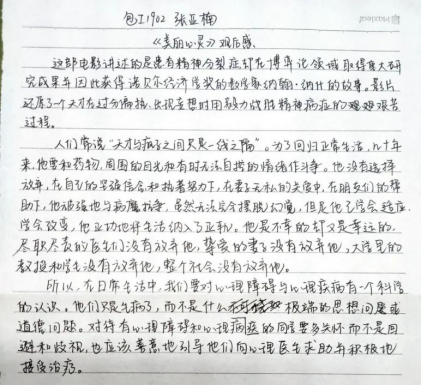 包工1902 张亚楠
《美丽心灵》观后感
这部电影讲述的是患有精神分裂症却在博弈论领域取得重大研
究成果并因此获得诺尔经济学奖的数学家纳翰·纳什的故事。影片
还原了一个天才在过分偏执、狂想妄想时用毅力战胜精神病症的艰苦
过程。
人们常说“天才与疯子之间只是一线之隔”。为了回归正常生活，几十年
来，他要和药物，周围的目光和有时无法自控的情绪作斗争。他没有选择
放弃，在自己的坚强信念和执着努力下，在妻子无私的关爱中，在朋友们的帮
助下，他顽强也与病魔抗争，虽然无法完全摆脱幻觉，但是他学会适应，
学会改变，他成功地将生活纳入了正轨。他是不幸的却又是幸运的，
尽职尽责的医生们没有放弃他，挚爱的妻子没有放弃他，大学里的
教授和学生没有放弃他，整个社会没有放弃他。
所以，在日常生活中，我们要对心理障碍与心理疾病有个科学
的认识。他们只是生病了，而不是什么极端的思想问题或
道德问题。对待有心理障碍和心理病症的同学要多关怀而不是回
避和歧视，也应该善意地引导他们向心理医生求助并积极地
接受治疗。